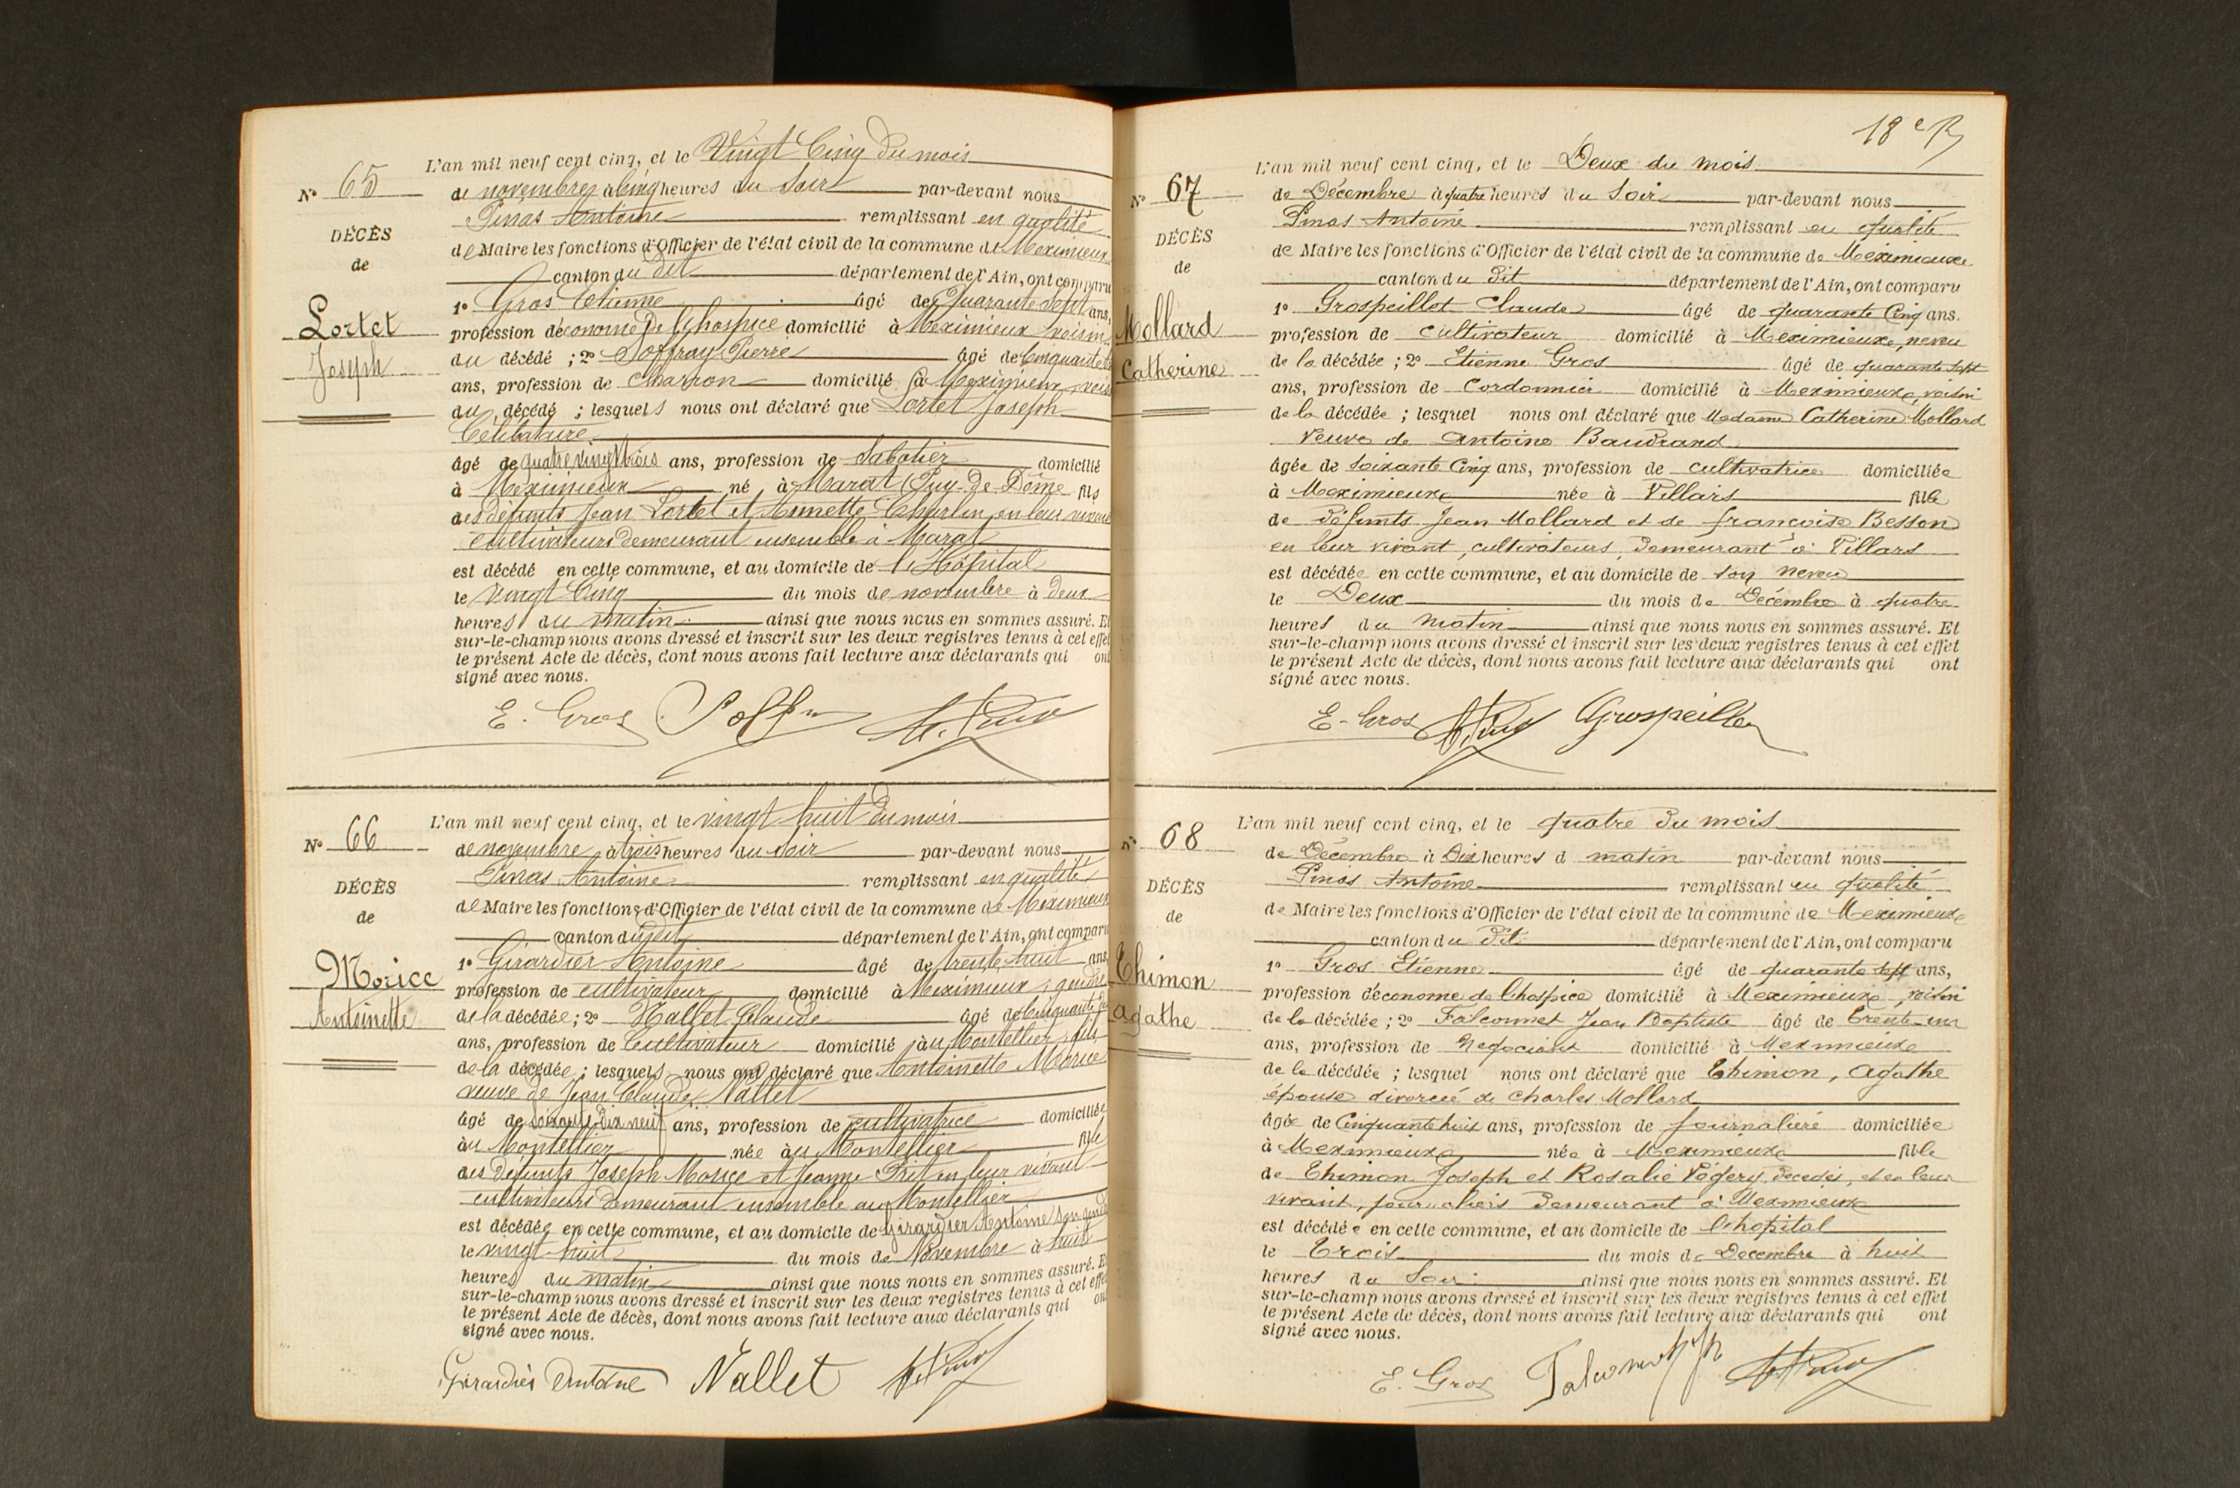 N° 65
DÉCÈS
de
Lortet
Joseph
L'an mil neuf cent cinq, et le Vingt Cinq du mois
de novembre à cinq heures du Soir par-devant nous
Pinas Antoine remplissant en qualité
de Maire les fonctions d'Officier de l'état civil de la commune de Meximieux
canton du dit département de l'Ain, ont comparu
1° Gros Etienne âgé de Quarante sept ans,
profession d'économe de l'hospice domicilié à Meximieux voisin
du décédé ; 2° Soffray Pierre âgé de Cinquante
ans, profession de Charron domicilié à Meximieux voisin
du décédé ; lesquels nous ont déclaré que Lortet Joseph
Célibataire
âgé de quatre vingt trois ans, profession de Sabotier domicilié
à Meximieux né à Marat Puy-de-Dôme fils
des défunts Jean Lortet et Annette en leur vivant
cultivateurs demeurant ensemble à Marat
est décédé en cette commune, et au domicile de l'Hôpital
le vingt Cinq du mois de novembre à deux
heures du matin ainsi que nous nous en sommes assuré. Et
sur-le-champ nous avons dressé et inscrit sur les deux registres tenus à cet effet
le présent Acte de décès, dont nous avons fait lecture aux déclarants qui ont
signé avec nous.
E. Gros
N° 66
DÉCÈS
de
Morice
Antoinette
L'an mil neuf cent cinq, et le vingt huit du mois
de novembre à trois heures du soir par-devant nous
Pinas Antoine remplissant en qualité
de Maire les fonctions d'Officier de l'état civil de la commune de Meximieux
canton du dit département de l'Ain, ont comparu
1° Girardier Antoine âgé de trente huit ans,
profession de cultivateur domicilié à Meximieux, gendre
de la décédée ; 2° Nallet Claude âgé de Cinquante
ans, profession de Cultivateur domicilié au Montellier, fils
de la décédée ; lesquels nous ont déclaré que Antoinette Morice
veuve de Jean Claude Nallet
âgé de soixante dix neuf ans, profession de cultivatrice domiciliée
au Montellier née au Montellier fille
des défunts Joseph Morice et Jeanne en leur vivant
cultivateurs demeurant ensemble au Montellier
est décédée en cette commune, et au domicile de Girardier Antoine son gendre
le vingt huit du mois de Novembre à huit
heures du matin ainsi que nous nous en sommes assuré. Et
sur-le-champ nous avons dressé et inscrit sur les deux registres tenus à cet effet
le présent Acte de décès, dont nous avons fait lecture aux déclarants qui ont
signé avec nous.
Girardier Antoine Nallet
18e
N° 67
DÉCÈS
de
Mollard
Catherine
L'an mil neuf cent cinq, et le Deux du mois
de Décembre à quatre heures du Soir par-devant nous
Pinas Antoine remplissant en qualité
de Maire les fonctions d'Officier de l'état civil de la commune de Meximieux
canton du dit département de l'Ain, ont comparu
1° Grospeillet Claude âgé de quarante Cinq ans.
profession de cultivateur domicilié à Meximieux, neveu
de la décédée ; 2° Etienne Gros âgé de quarante sept
ans, profession de Cordonnier domicilié à Meximieux, voisin
de la décédée ; lesquel nous ont déclaré que Madame Catherine Mollard
Veuve de Antoine Baudrand
âgée de soixante Cinq ans, profession de cultivatrice domiciliée
à Meximieux née à Villars fille
de défunts Jean Mollard et de françoise Besson
en leur vivant, cultivateurs, demeurant à Villars
est décédée en cette commune, et au domicile de son neveu
le Deux du mois de Décembre à quatre
heures du Matin ainsi que nous nous en sommes assuré. Et
sur-le-champ nous avons dressé et inscrit sur les deux registres tenus à cet effet
le présent Acte de décès, dont nous avons fait lecture aux déclarants qui ont
signé avec nous.
E. Gros Grospeillet
N° 68
DÉCÈS
de
Thimon
Agathe
L'an mil neuf cent cinq, et le quatre du mois
de Décembre à Dix heures d matin par-devant nous
Pinas Antoine remplissant en qualité
de Maire les fonctions d'Officier de l'état civil de la commune de Meximieux
canton du dit département de l'Ain, ont comparu
1° Gros Etienne âgé de quarante sept ans,
profession d'économe de l'hospice domicilié à Meximieux, voisin
de la décédée ; 2° Falconnet Jean Baptiste âgé de trente-un
ans, profession de Negociant domicilié à Meximieux
de la décédée ; lesquel nous ont déclaré que Thimon, Agathe
épouse divorcée de Charles Mollard
âgée de Cinquante huit ans, profession de journalière domiciliée
à Meximieux née à Meximieux fille
de Thimon Joseph et Rosalie décédés, et en leur
vivant, journaliers demeurant à Meximieux
est décédée en cette commune, et au domicile de l'hopital
le Trois du mois de Decembre à huit
heures du Soir ainsi que nous nous en sommes assuré. Et
sur-le-champ nous avons dressé et inscrit sur les deux registres tenus à cet effet
le présent Acte de décès, dont nous avons fait lecture aux déclarants qui ont
signé avec nous.
E. Gros Falconnet